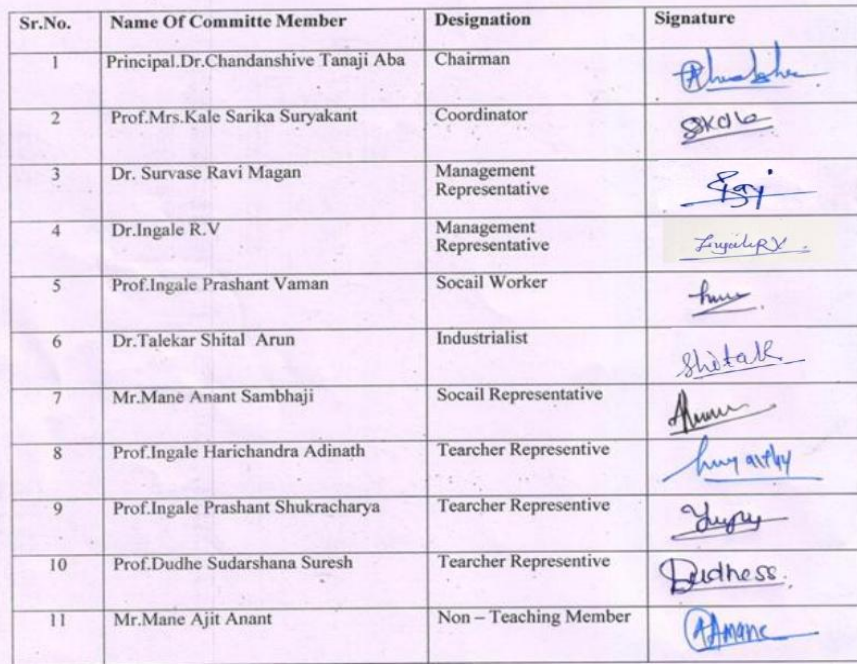 Sr.No. Name Of Committe Member Designation Signature
1 Principal.Dr.Chandanshive Tanaji Aba Chairman
2 Prof.Mrs.Kale Sarika Suryakant Coordinator SSKale
3 Dr. Survase Ravi Magan Management
Representative
4 Dr.Ingale R.V Management
Representative IngaleRV
5 Prof.Ingale Prashant Vaman Socail Worker
6 Dr.Talekar Shital Arun Industrialist
7 Mr.Mane Anant Sambhaji Socail Representative
8 Prof.Ingale Harichandra Adinath Tearcher Representive
9 Prof.Ingale Prashant Shukracharya Tearcher Representive
10 Prof.Dudhe Sudarshana Suresh Tearcher Representive Dudhess.
11 Mr.Mane Ajit Anant Non – Teaching Member AAMane